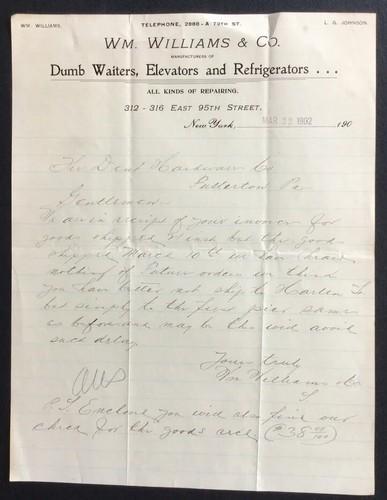 WM. WILLIAMS.
TELEPHONE, 2888-A 79TH ST.
L. G. JOHNSON.
WM. WILLIAMS & CO.
MANUFACTURERS OF
Dumb Waiters, Elevators and Refrigerators ...
ALL KINDS OF REPAIRING.
312 - 316 EAST 95TH STREET,
New York, MAR 22 1902 190
The Dent Hardware Co
Fullerton Pa
Gentlemen
We are in receipt of your invoice for
goods shipped but the goods
shipped March 10th we have heard
nothing of Future orders we think
you had better not ship to Harlem
but simply to the first pier same
as before and may be this will avoid
such delay
Yours truly
Wm Williams & Co
P.S. Enclose you will also find our
check for the goods recd ($38 00/100)